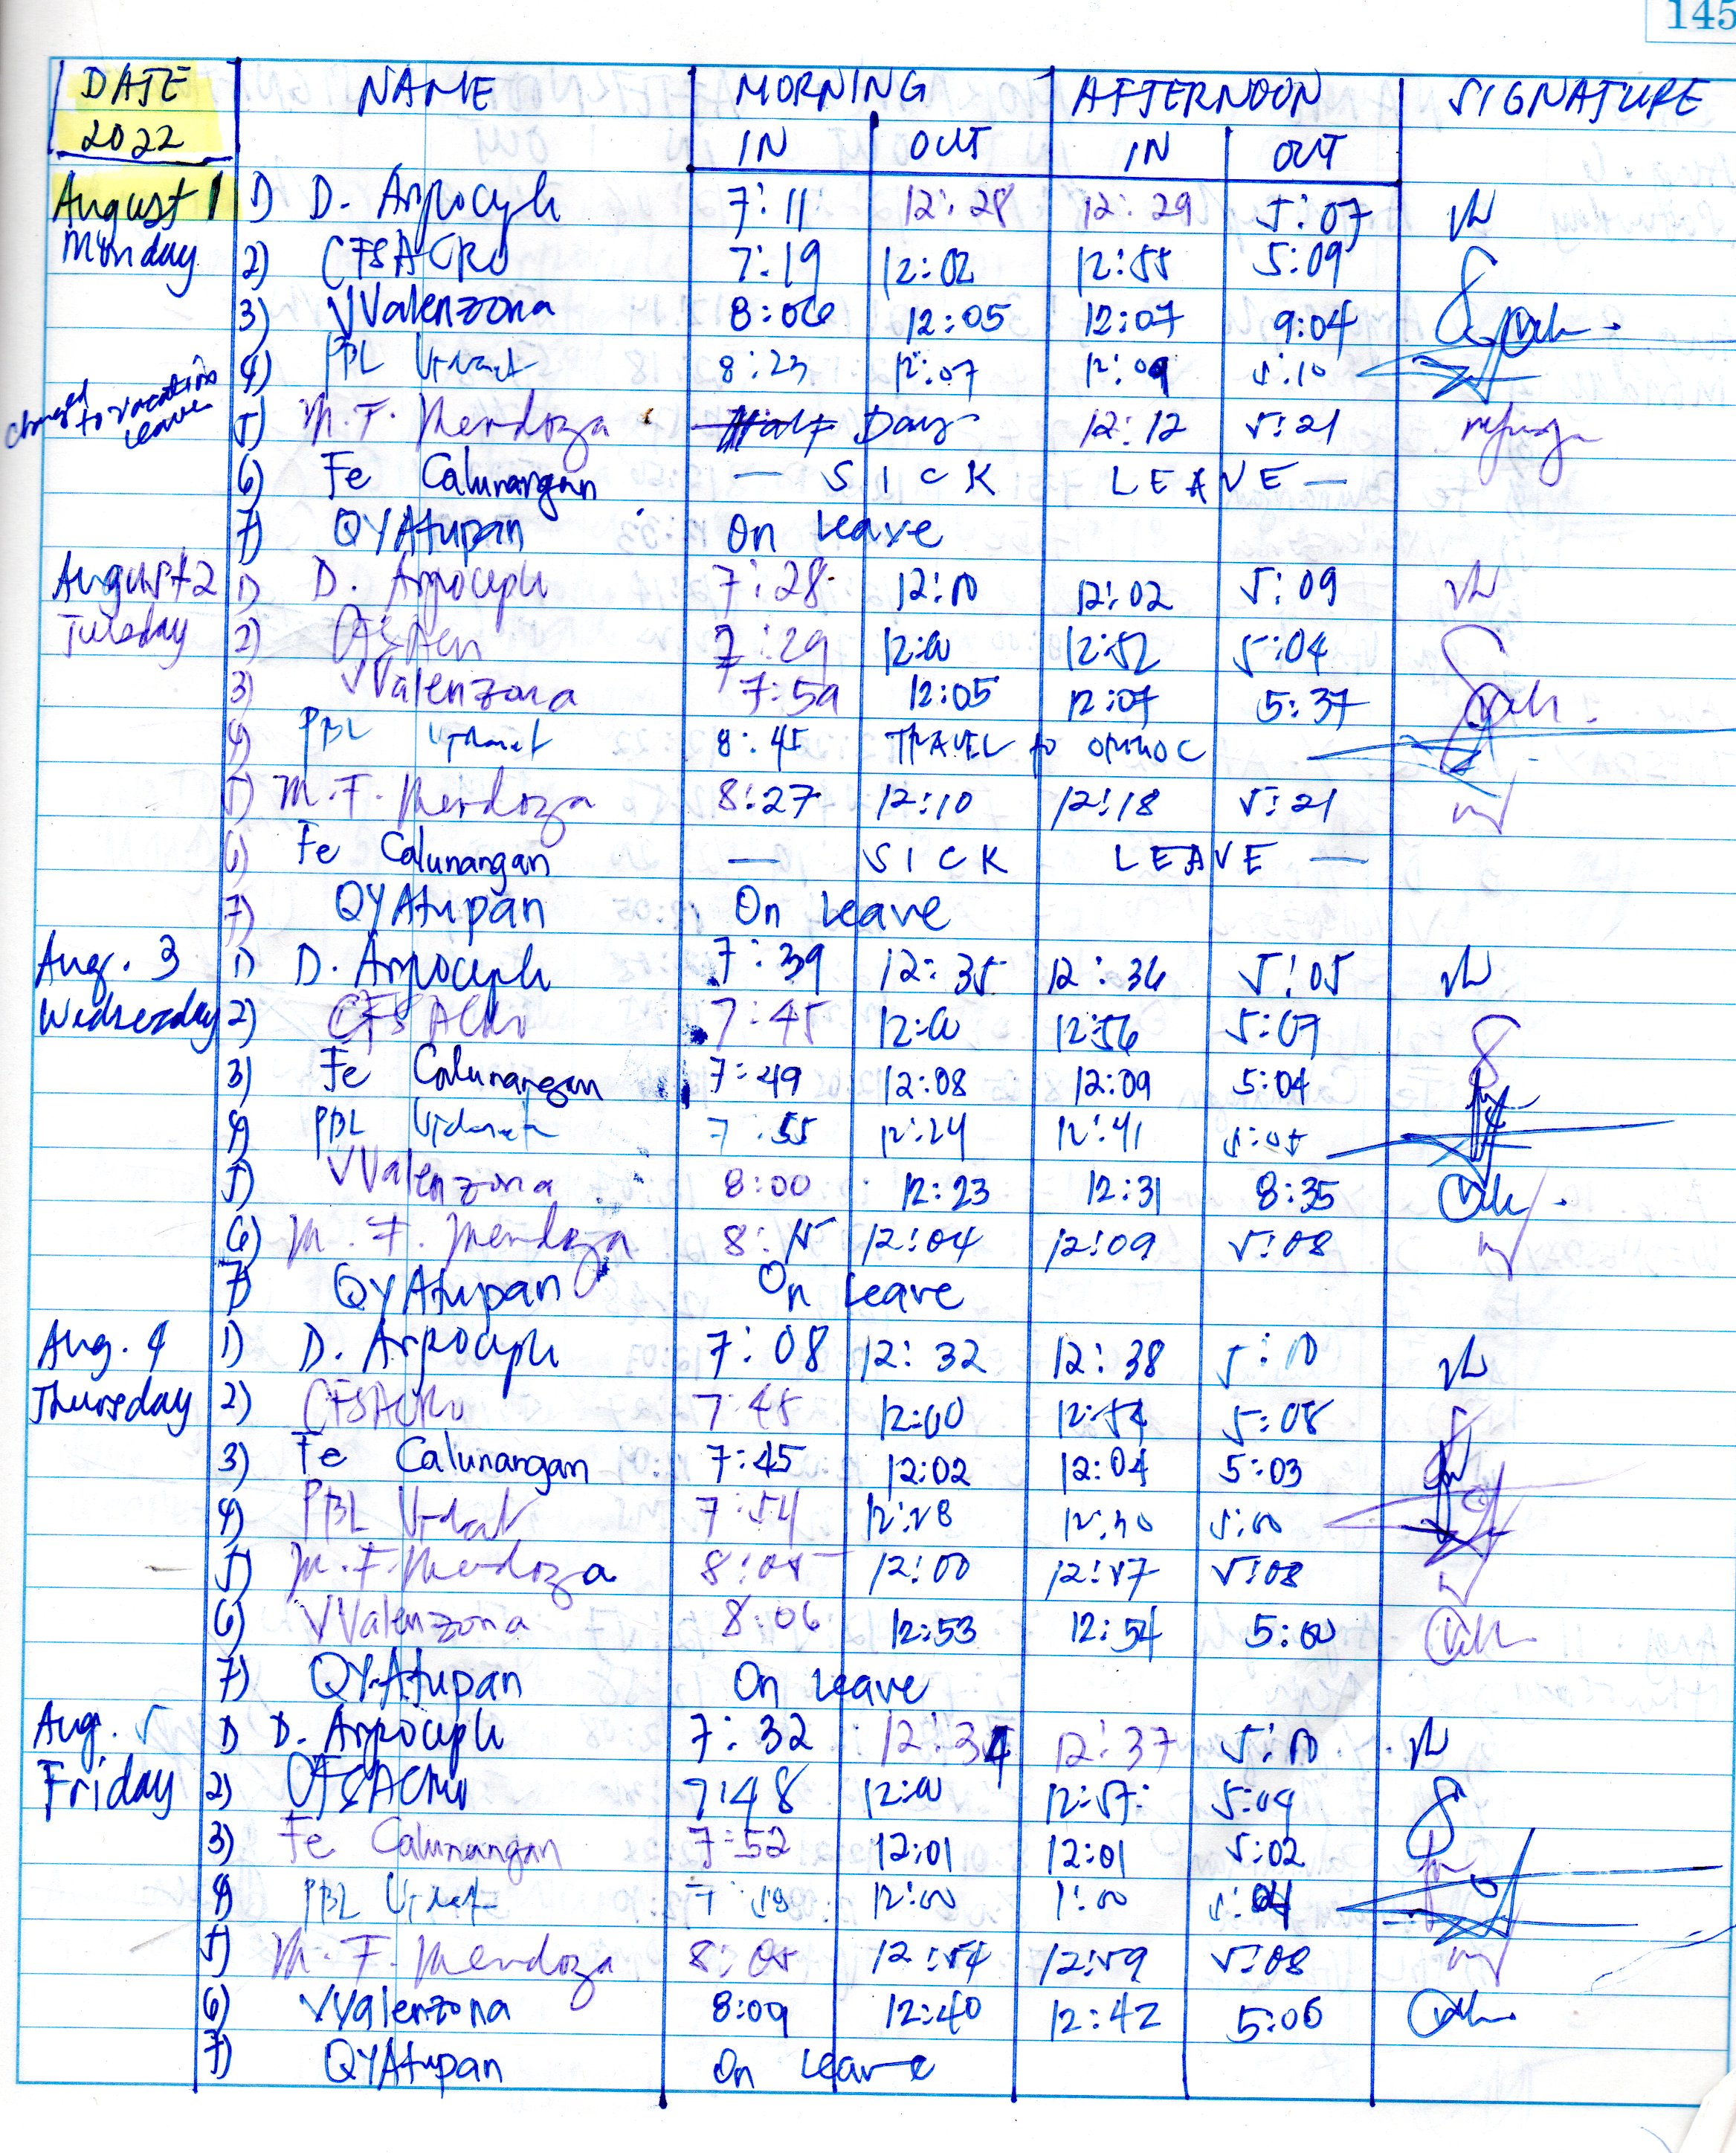 145
DATE NAME MORNING AFTERNOON SIGNATURE
2022 IN OUT IN OUT
August 1 1) D. Arpoceph 7:11 12:28 12:29 5:07
Monday 2) CFSACRO 7:19 12:02 12:55 5:09
3) VValenzona 8:06 12:05 12:07 9:04
4) PBL 8:23 12:07 12:09 5:10
changed to vacation leave 5) M.F. Mendoza Half Day 12:12 5:21
6) Fe Calunangan — SICK LEAVE —
7) QYAtupan On leave
August 2 1) D. Arpoceph 7:28 12:10 12:02 5:09
Tuesday 2) 7:29 12:00 12:52 5:04
3) VValenzona 7:59 12:05 12:07 5:37
4) PBL 8:45 TRAVEL to ORMOC
5) M.F. Mendoza 8:27 12:10 12:18 5:21
6) Fe Calunangan — SICK LEAVE —
7) QYAtupan On leave
Aug. 3 1) D. Arpoceph 7:39 12:35 12:36 5:05
Wednesday 2) CFSACRO 7:45 12:00 12:56 5:07
3) Fe Calunangan 7:49 12:08 12:09 5:04
4) PBL 7:55 12:24 12:41 5:05
5) VValenzona 8:00 12:23 12:31 8:35
6) M.F. Mendoza 8:15 12:04 12:09 5:08
7) QYAtupan On leave
Aug. 4 1) D. Arpoceph 7:08 12:32 12:38 5:10
Thursday 2) CFSACRO 7:45 12:00 12:54 5:08
3) Fe Calunangan 7:45 12:02 12:04 5:03
4) PBL 7:54 12:28 12:30 5:00
5) M.F. Mendoza 8:05 12:00 12:57 5:08
6) VValenzona 8:06 12:53 12:54 5:00
7) QYAtupan On leave
Aug. 5 1) D. Arpoceph 7:32 12:34 12:37 5:10
Friday 2) CFSACRO 7:48 12:00 12:57 5:04
3) Fe Calunangan 7:52 12:01 12:01 5:02
4) PBL 7:59 12:00 1:00 5:04
5) M.F. Mendoza 8:05 12:54 12:59 5:08
6) VValenzona 8:09 12:40 12:42 5:06
7) QYAtupan On leave